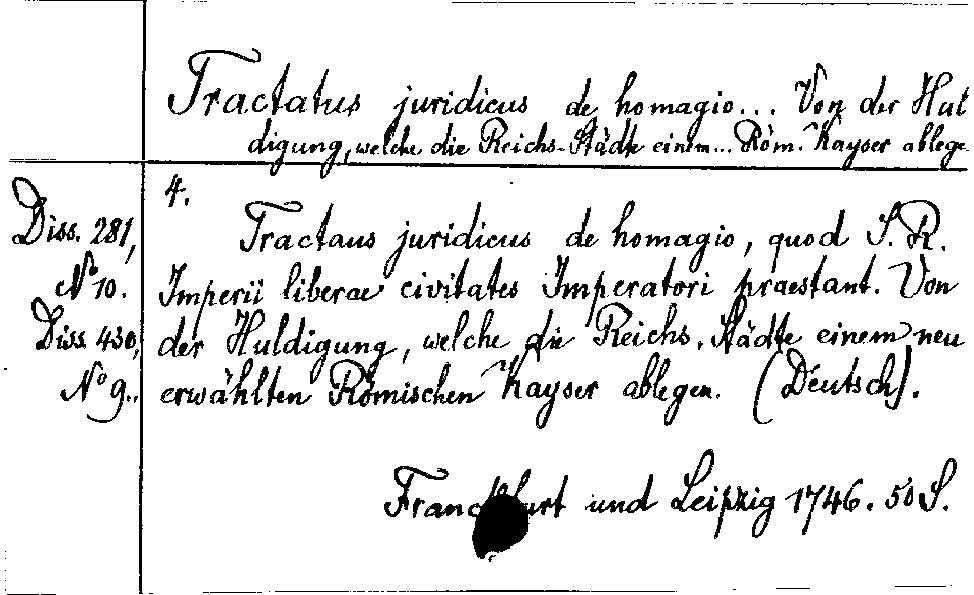 Tractatus juridicus de homagio... Von der Hul
digung, welche die Reichs-Städte einem... Röm. Kayser ablege
4.
Diss. 281,
No 10.
Diss. 430,
No 9.
Tractaus juridicus de homagio, quod S. R.
Imperii liberae civitates Imperatori praestant. Von
der Huldigung, welche die Reichs-Städte einem neu
erwählten Römischen Kayser ablegen. (Deutsch).
Franckfurt und Leipzig 1746. 50 S.